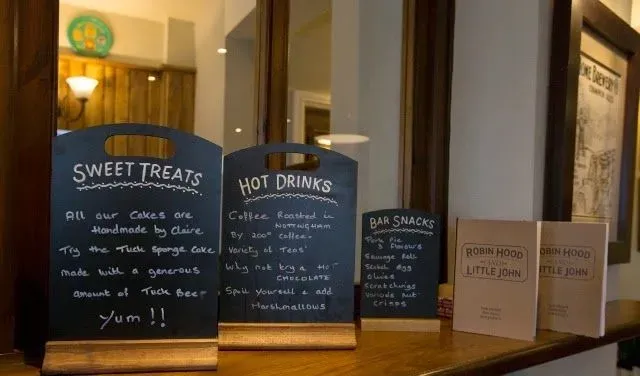 SWEET TREATS
All our Cakes are
Handmade by Claire
Try the Tuck Sponge Cake
made with a generous
amount of Tuck Beer
Yum !!
HOT DRINKS
Coffee Roasted in
NOTTINGHAM
By 200° Coffee.
Variety of Teas'
Why not try a HOT
CHOCOLATE
Spoil yourself & add
Marshmallows
BAR SNACKS
Pork Pie
3 flavours
Sausage Roll
Scotch Egg
Olives
Scratchings
Various Nut
Crisps
ROBIN HOOD
AND
LITTLE JOHN
ROBIN HOOD
AND
LITTLE JOHN